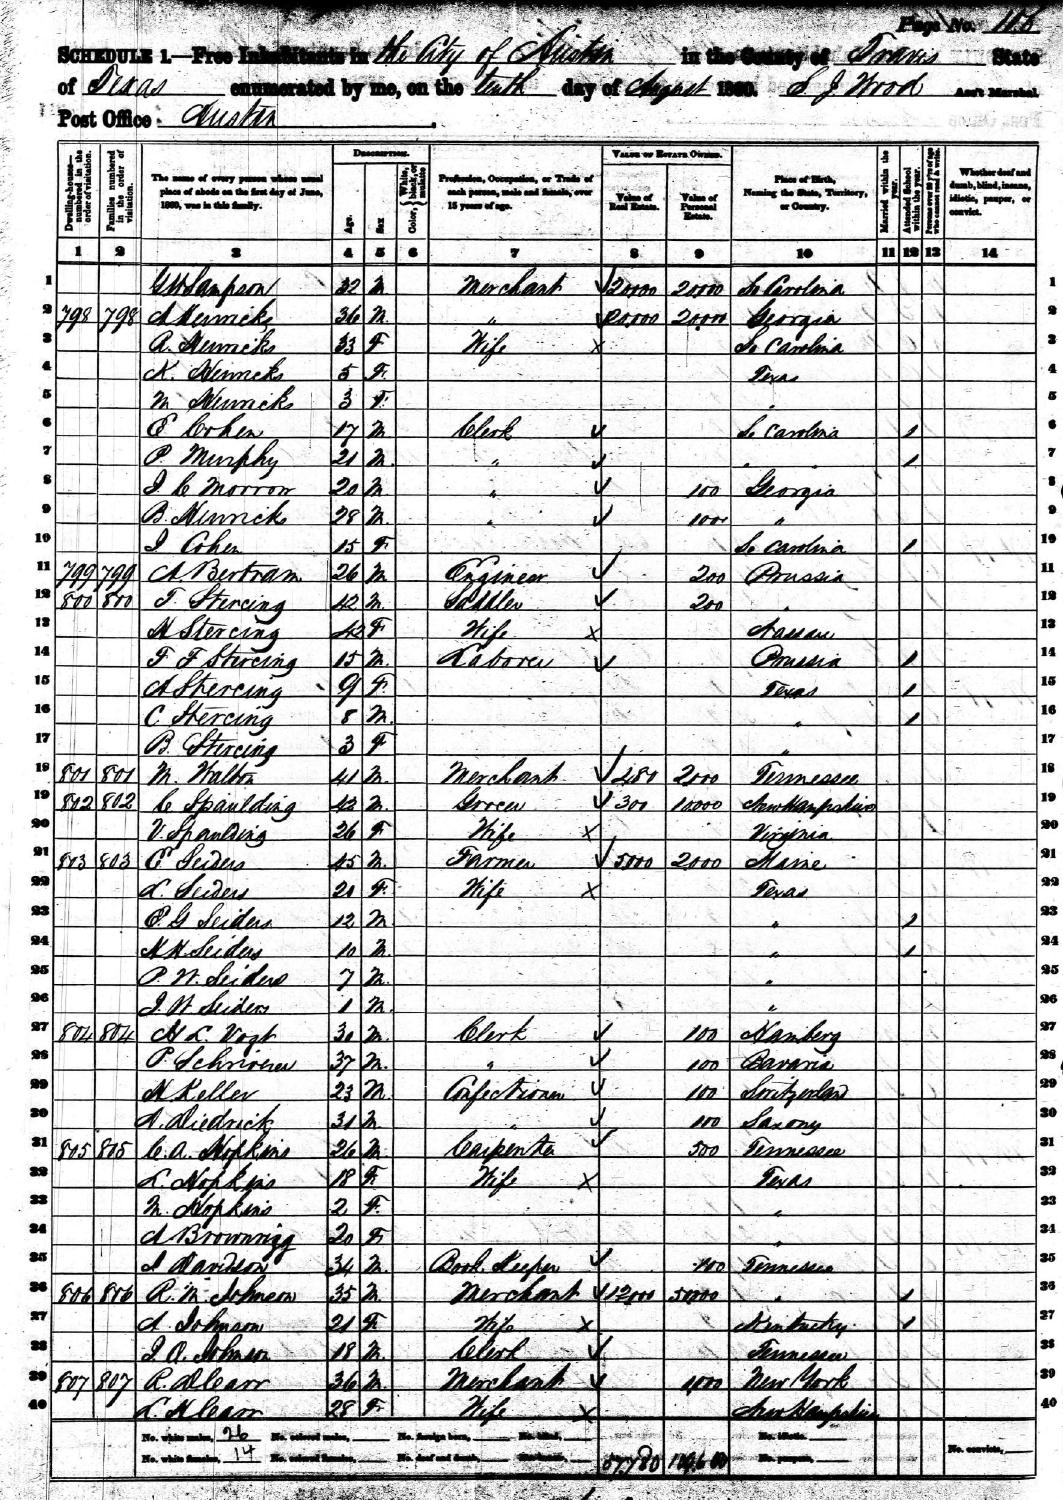 Page No. 106
SCHEDULE 1.—Free Inhabitants in the City of Austin in the County of Travis State
of Texas enumerated by me, on the tenth day of August 1860. S J Wood Ass't Marshal.
Post Office Austin
Dwelling-houses—numbered in the order of visitation. Families numbered in the order of visitation. The name of every person whose usual place of abode on the first day of June, 1860, was in this family. DESCRIPTION. Age. Sex Color, White, black, or mulatto Profession, Occupation, or Trade of each person, male and female, over 15 years of age. VALUE OF ESTATE OWNED. Value of Real Estate. Value of Personal Estate. Place of Birth, Naming the State, Territory, or Country. Married within the year. Attended School within the year. Persons over 20 y'rs of age who cannot read & write. Whether deaf and dumb, blind, insane, idiotic, pauper, or convict.
1 2 3 4 5 6 7 8 9 10 11 12 13 14
1 G W Sampson 32 M Merchant 20000 20000 So Carolina 1
2 798 798 A Henricks 36 M " 20,000 20,000 Georgia 2
3 A. Henricks 33 F Wife x So Carolina 3
4 K. Henricks 5 F. Texas 4
5 M Henricks 3 F. " 5
6 E Cohen 17 M Clerk So Carolina 1 6
7 P. Murphy 21 M. " " " 1 7
8 J C Morrow 20 M " 100 Georgia 8
9 B. Henricks 28 M. " " 9
10 J Cohen 15 F So Carolina 1 10
11 799 799 A Bertram 26 M Engineer 200 Prussia 11
12 800 800 T. Stercing 42 M. Saddler 200 " 12
13 H Stercing 42 F Wife x Nassau 13
14 F F Stercing 15 M. Laborer Prussia 1 14
15 A Stercing 9 F. Texas 1 15
16 C Stercing 8 M. " 1 16
17 B. Stercing 3 F " 17
18 801 801 M. Walton 41 M. Merchant 280 2000 Tennessee 18
19 802 802 C Spaulding 42 M. Grocer 300 10000 New Hampshire 19
20 V. Spaulding 26 F Wife x Virginia 20
21 803 803 E Seiders 45 M. Farmer 5000 2000 Maine 21
22 L Seiders 21 F. Wife x Texas 22
23 E. G Seiders 12 M. " 1 23
24 H H Seiders 10 M. " 1 24
25 P. W. Seiders 7 M. " 25
26 J W Seiders 1 M. " 26
27 804 804 H L. Vogt 30 M. Clerk 100 Hamberg 27
28 P. 37 M. " 100 Bavaria 28
29 H Keller 23 M. Confectioner 100 Switzerland 29
30 A. Diedrick 31 M. " 100 Saxony 30
31 805 805 C. A. Hopkins 26 M. Carpenter 500 Tennessee 31
32 L Hopkins 18 F. Wife x Texas 32
33 M. Hopkins 2 F. " 33
34 A Brownrigg 20 F. " 34
35 J Davidson 34 M. Book Keeper Tennessee 35
36 806 806 R. M. Johnson 35 M. Merchant 12000 50000 " 1 36
37 A. Johnson 21 F. Wife x Kentucky 1 37
38 J. A. Johnson 18 M. Clerk Tennessee 38
39 807 807 R. D Carr 36 M. Merchant New York 39
40 L H Carr 28 F Wife x New Hampshire 40
No. white males, 26 No. colored males, No. foreign born, No. blind, No. idiotic.
No. white females, 14 No. colored females, No. deaf and dumb, No. insane, 57,780 No. paupers, No. convicts,